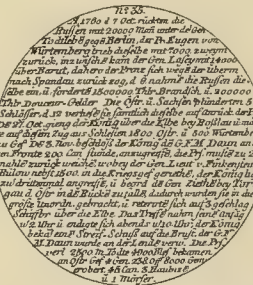 No 33.
A 1760 d 9 Oct. rückten die
Rußen mit 20000 Mañ unter de Gen.
Todtleb gegē Berlin, der Pr. Eugen von
Würtemberg trieb dieselbe mit 7000. zweymt
zurück, in zwischē kam der Gen Lascy mit 14000
über Barut, daher der Prinz sich wegē der überm
nach Spandau zurück zog, d 9 nahmē die Rußen die
selbe ein, u. forderte 1500000 Thlr Brandsch. u 200000
Thlr Douceur-Gelder. Die Östr. u. Sachsen plünderten 5
Schlößer, d 12 verließē sie sämtlich dieselbe auf
d 27 Oct. gieng der König über die Elbe
auf diesem Zug aus Schlesien 1800 Östr. u 500 Würtembr
zu Gef. D 3 Nov. beschloß der König dē G. F. M. Daun an
Fronte 200 Can. stunde, anzugreifē, die Pr. mußtē zu 2
zurück weichē, wobey der Gen. Lieut v Finkenstein
Bülow nebst 1500. in die Kriegsgef geriethē, der König
zu drittenmal angreifē, u. beord dē Gen. Ziethē bey Tor
gau d. Östr. in dē Rückē zu fallē, dadurch wurdē sie in die
größte Unordn. gebracht, u. retirirtē sich auf 3 geschlag
Schifbr. über die Elbe. Das Treffē nahm
2 Uhr u endigte sich abends 10 Uhr, der König
bekā einē Streif-Schuß auf die Brust, der G. F
M. Daun wurde an der Lende verw. Die Pr.
verl. 2500 M. Todte 4900 Bless. bekamen
an Östr. Gef. 4 Gen. 238 Off 8000 Gem.
erobert. 45 Can. 3 Haubitz
u 1 Mörser.